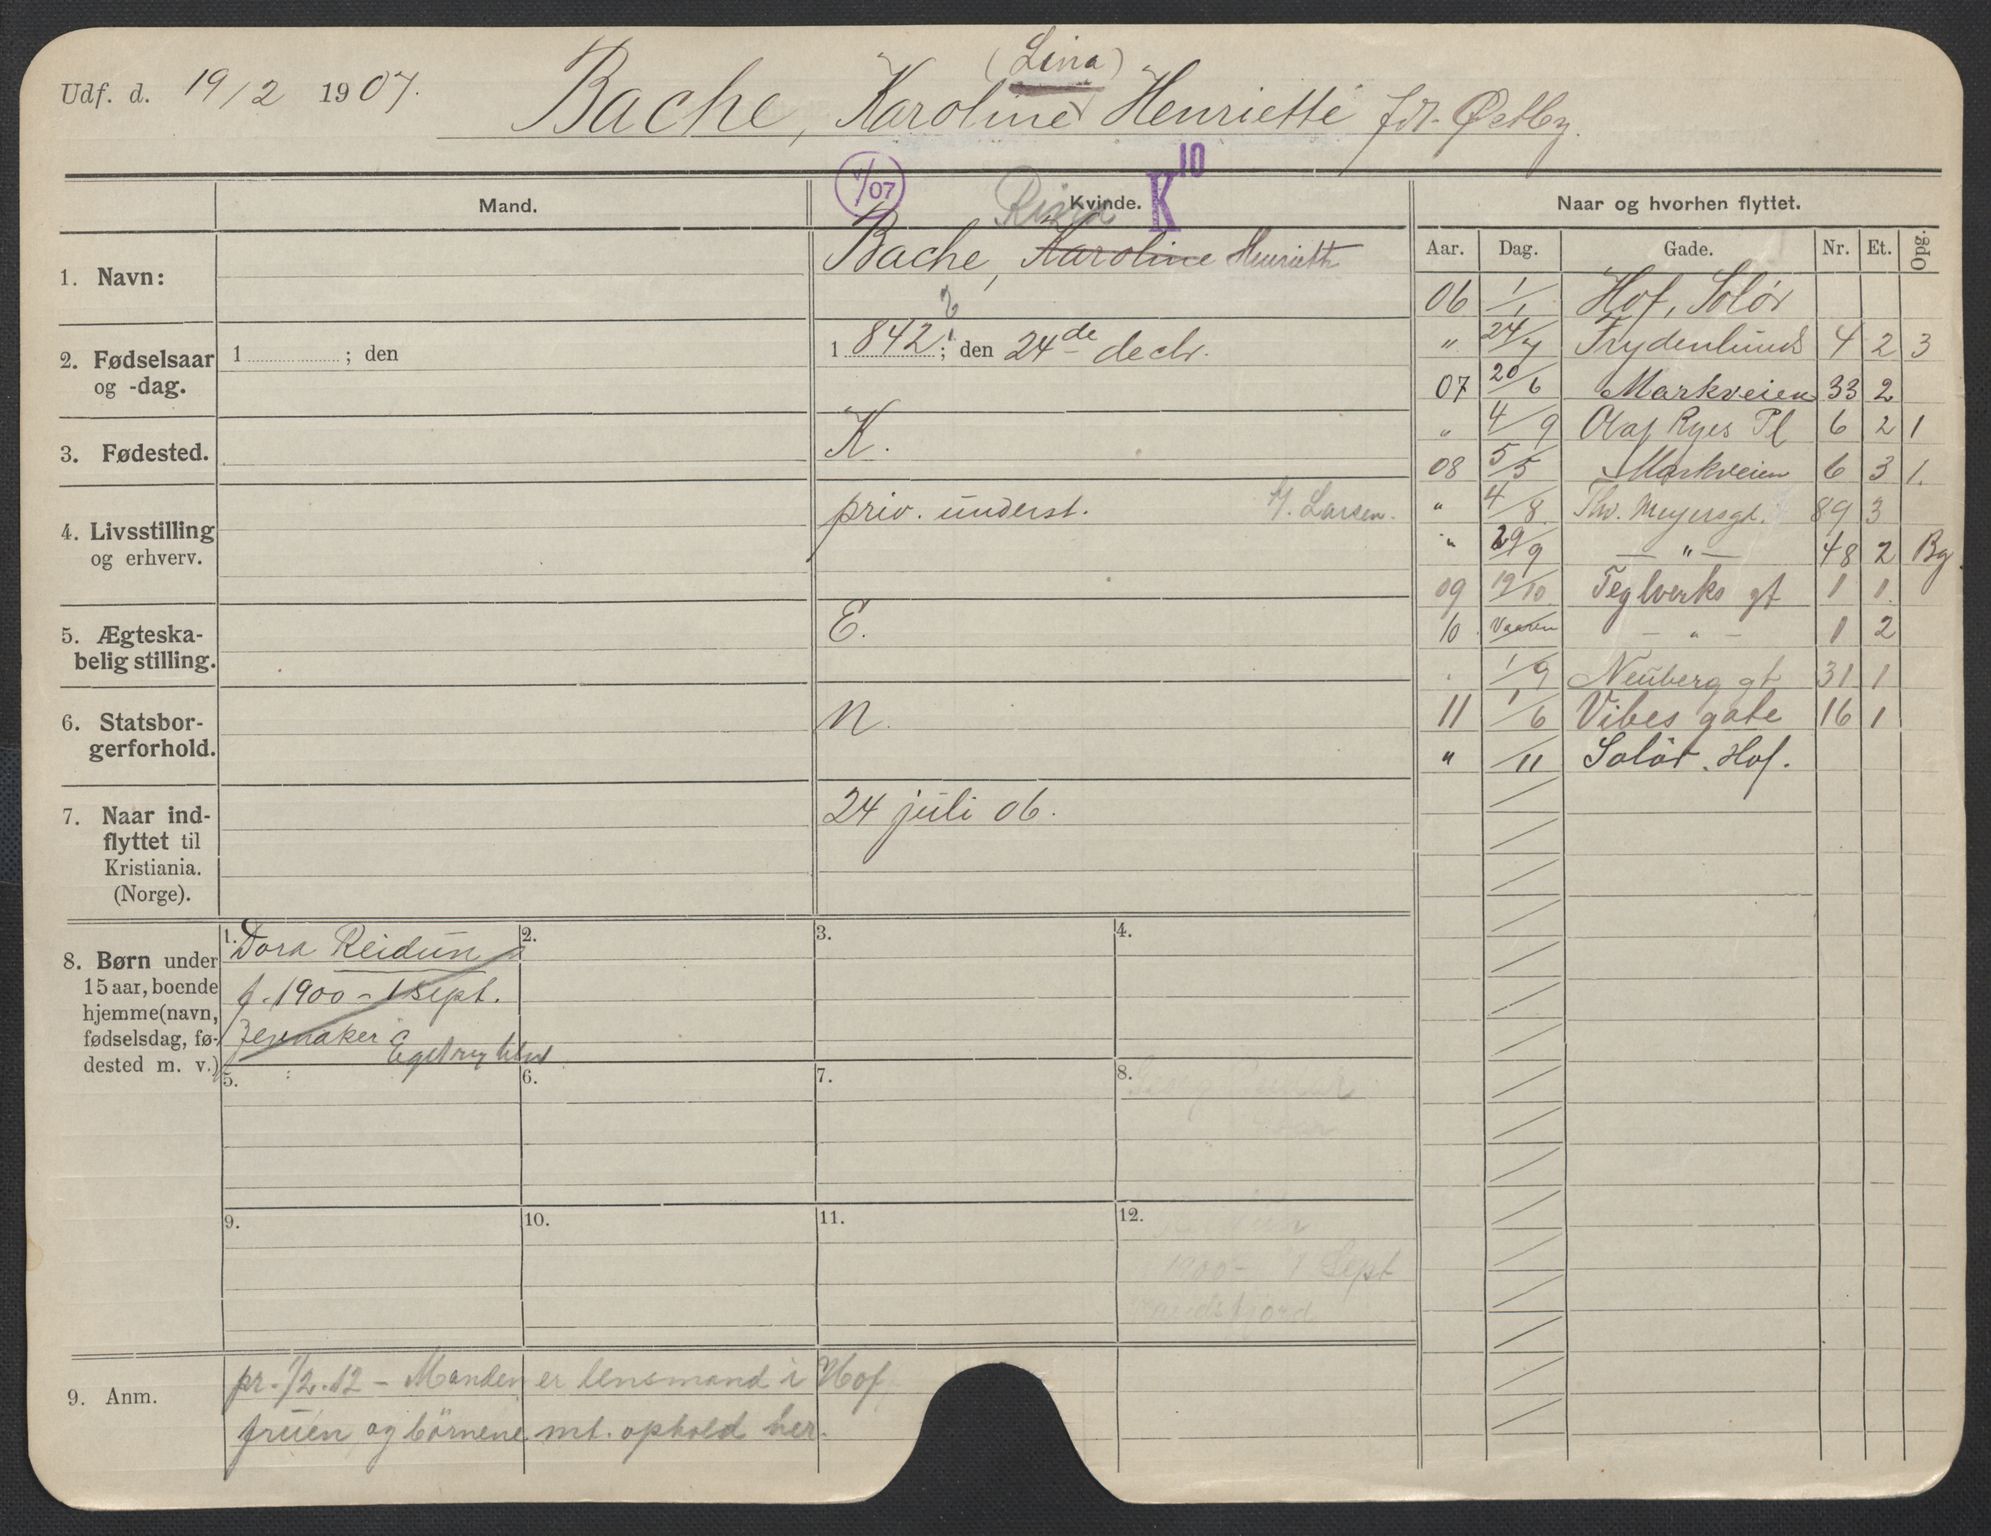 (Lina)
Udf. d. 19/2 1907. Bache, Karoline Henriette
1/07 K 10
Mand. Kvinde. Naar og hvorhen flyttet.
Aar. Dag. Gade. Nr. Et. Opg.
1. Navn: Bache, Karoline Henriette
2. Fødselsaar 1 ; den 1 842 ; den 24de decbr.
og -dag.
3. Fødested. K.
4. Livsstilling priv. underst. Larsen.
og erhverv.
5. Ægteska- E.
belig stilling.
6. Statsbor- N.
gerforhold.
7. Naar ind- 24 juli 06.
flyttet til
Kristiania.
(Norge).
06 1/1 Hof, Solør
„ 24/7 Frydenlunds 4 2 3
07 20/6 Markveien 33 2
„ 4/9 Olaf Ryes Pl 6 2 1
08 5/5 Markveien 6 3 1.
„ 4/8 Thv. Meyersgt. 89 3
„ 29/9 — „ — 48 2 Bg.
09 19/10 Teglverks gt 1 1.
10 Vaaren — „ — 1 2
1/9 Neuberg gt 31 1
11 1/6 Vibes gate 16 1
„ /11 Solør. Hof.
8. Børn under
15 aar, boende
hjemme (navn,
fødselsdag, fø-
dested m. v.)
1. Dora Reidun 2. 3. 4.
f. 1900 – 1 sept.
5. 6. 7. 8.
9. 10. 11. 12.
1900 – 1 Sept
9. Anm. pr. 1/2.12 – Manden er lensmand i Hof
fruen og börnene mt. ophold her.